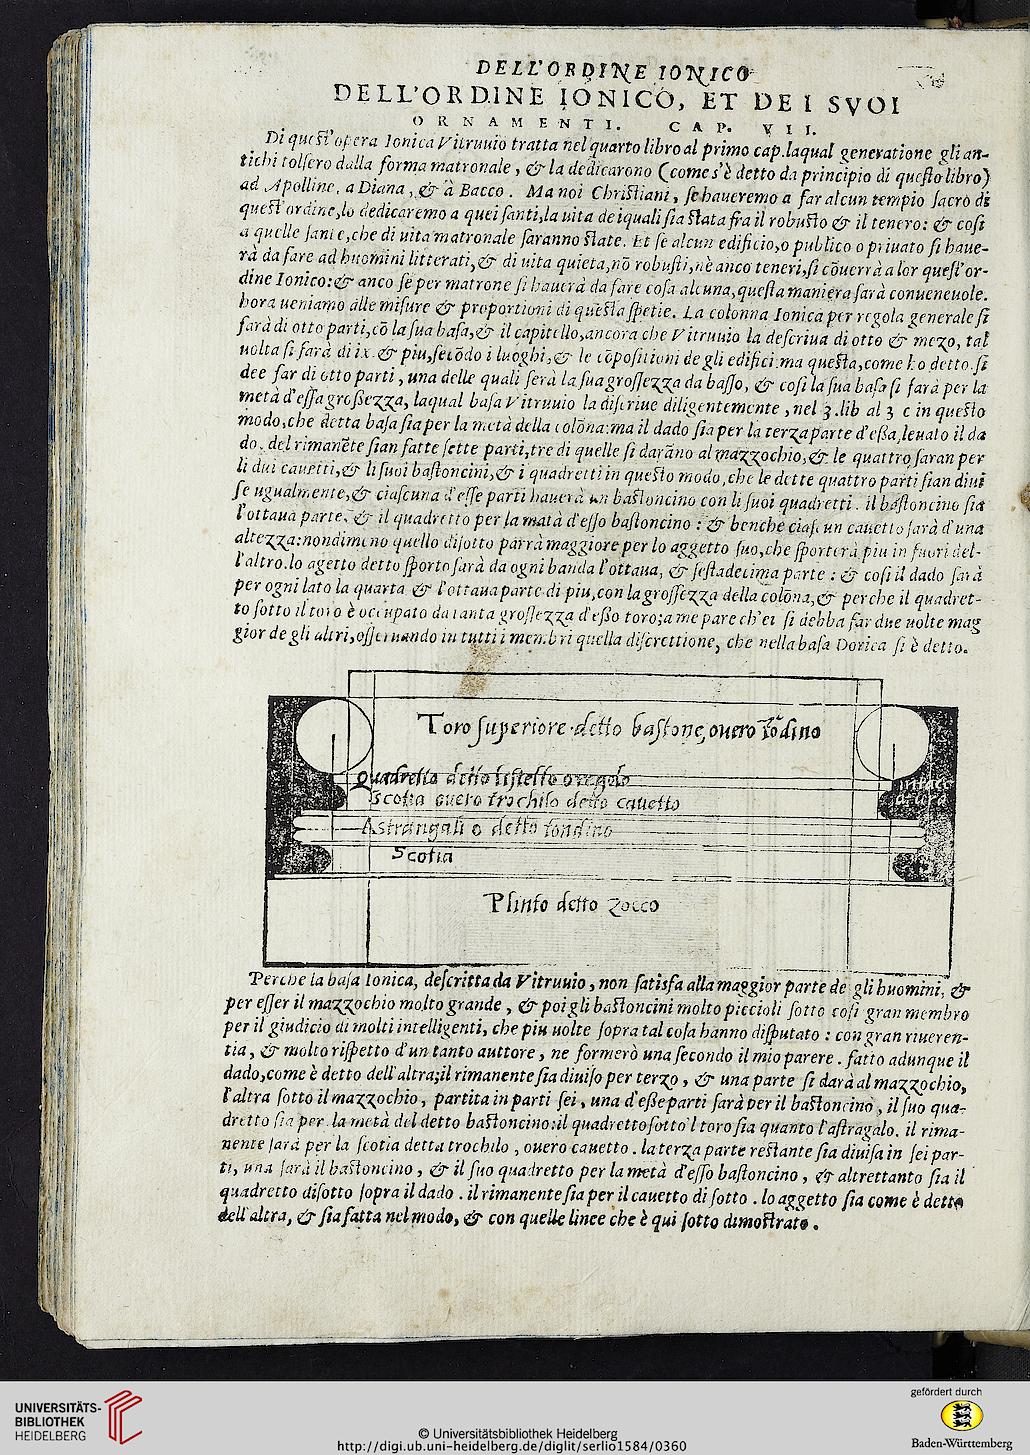 DELL'ORDINE IONICO
DELL'ORDINE IONICO, ET DEI SVOI
ORNAMENTI. CAP. VII.
Di quest'opera Ionica Vitruuio tratta nel quarto libro al primo cap.laqual generatione gli an-
tichi tolsero dalla forma matronale, & la dedicarono (come s'è detto da principio di questo libro)
ad Apolline, a Diana, & à Bacco. Ma noi Christiani, se haueremo a far alcun tempio sacro di
quest'ordine,lo dedicaremo a quei santi,la uita de iquali sia stata fra il robusto & il tenero: & cosi
a quelle sante,che di uita matronale saranno state. Et se alcun edificio,o publico o priuato si haue-
rà da fare ad huomini litterati,& di uita quieta,nō robusti,nè anco teneri,si cōuerrà a lor quest'or-
dine Ionico:& anco se per matrone si hauerà da fare cosa alcuna,questa maniera sarà conueneuole.
hora ueniamo alle misure & proportioni di questa spetie. La colonna Ionica per regola generale si
farà di otto parti,cō la sua basa,& il capitello,ancora che Vitruuio la descriua di otto & mezo, tal
uolta si farà di ix.& piu,secōdo i luoghi,& le cōpositioni de gli edifici:ma questa,come ho detto.si
dee far di otto parti, una delle quali serà la sua grossezza da basso, & cosi la sua basa si farà per la
metà d'essa großezza, laqual basa Vitruuio la discriue diligentemente, nel 3.lib al 3 c in questo
modo,che detta basa sia per la metà della colōna:ma il dado sia per la terza parte d'eßa,leuato il da
do. del rimanēte sian fatte sette parti,tre di quelle si darāno al mazzochio,& le quattro saran per
li dui cauetti,& li suoi bastoncini,& i quadretti in questo modo,che le dette quattro parti sian diui
se ugualmente,& ciascuna d'esse parti hauerà un bastoncino con li suoi quadretti. il bastoncino sia
l'ottaua parte, & il quadretto per la matà d'esso bastoncino: & benche ciascun cauetto sarà d'una
altezza:nondimeno quello disotto parrà maggiore per lo aggetto suo,che sporterà piu in fuori del-
l'altro.lo agetto detto sporto sarà da ogni banda l'ottaua, & sestadecima parte: & cosi il dado sarà
per ogni lato la quarta & l'ottaua parte di piu,con la grossezza della colōna,& perche il quadret-
to sotto il toro è occupato da tanta grossezza d'eßo toro;a me pare ch'ei si debba far due uolte mag
gior de gli altri,osseruando in tutti i membri quella discrettione, che nella basa Dorica si è detto.
Toro superiore detto bastone, ouero tōdino
Quadretto detto listello o regolo
Scotia ouero trochilo detto cauetto
Astrangali o detto tondino
Scotia
Plinto detto zocco
Perche la basa Ionica, descritta da Vitruuio, non satisfa alla maggior parte de gli huomini, &
per esser il mazzochio molto grande, & poi gli bastoncini molto piccioli sotto cosi gran membro
per il giudicio di molti intelligenti, che piu uolte sopra tal cosa hanno disputato: con gran riueren-
tia, & molto rispetto d'un tanto auttore, ne formerò una secondo il mio parere. fatto adunque il
dado,come è detto dell'altra;il rimanente sia diuiso per terzo, & una parte si darà al mazzochio,
l'altra sotto il mazzochio, partita in parti sei, una d'eße parti sarà per il bastoncino, il suo qua-
dretto sia per la metà del detto bastoncino:il quadretto sotto'l toro sia quanto l'astragalo. il rima-
nente sarà per la scotia detta trochilo, ouero cauetto. la terza parte restante sia diuisa in sei par-
ti, una sarà il bastoncino, & il suo quadretto per la metà d'esso bastoncino, & altrettanto sia il
quadretto disotto sopra il dado. il rimanente sia per il cauetto di sotto. lo aggetto sia come è detto
dell'altra, & sia fatta nel modo, & con quelle linee che è qui sotto dimostrato.
UNIVERSITÄTS-
BIBLIOTHEK
HEIDELBERG
© Universitätsbibliothek Heidelberg
http://digi.ub.uni-heidelberg.de/diglit/serlio1584/0360
gefördert durch
Baden-Württemberg